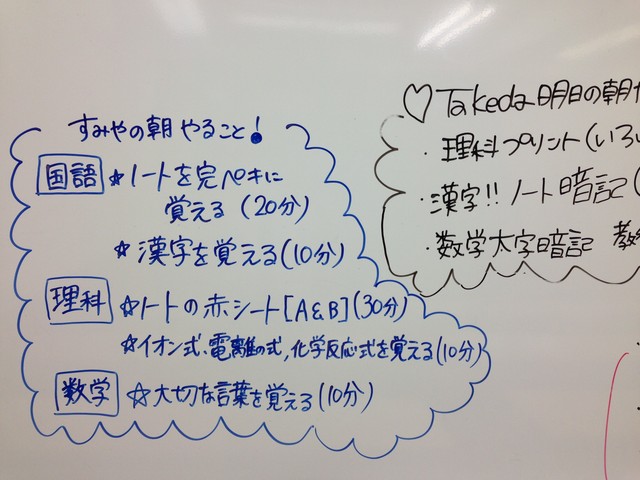 すみやの朝やること!
国語 ☆ノートを完ペキに
覚える(20分)
☆漢字を覚える(10分)
理科 ☆トトの赤シート[A&B](30分)
☆イオン式、電離の式,化学反応式を覚える(10分)
数学 ☆大切な言葉を覚える(10分)
♡Takeda明日の朝や
・理科プリント(いろい
・漢字!!ノート暗記(
・数学太字暗記 教